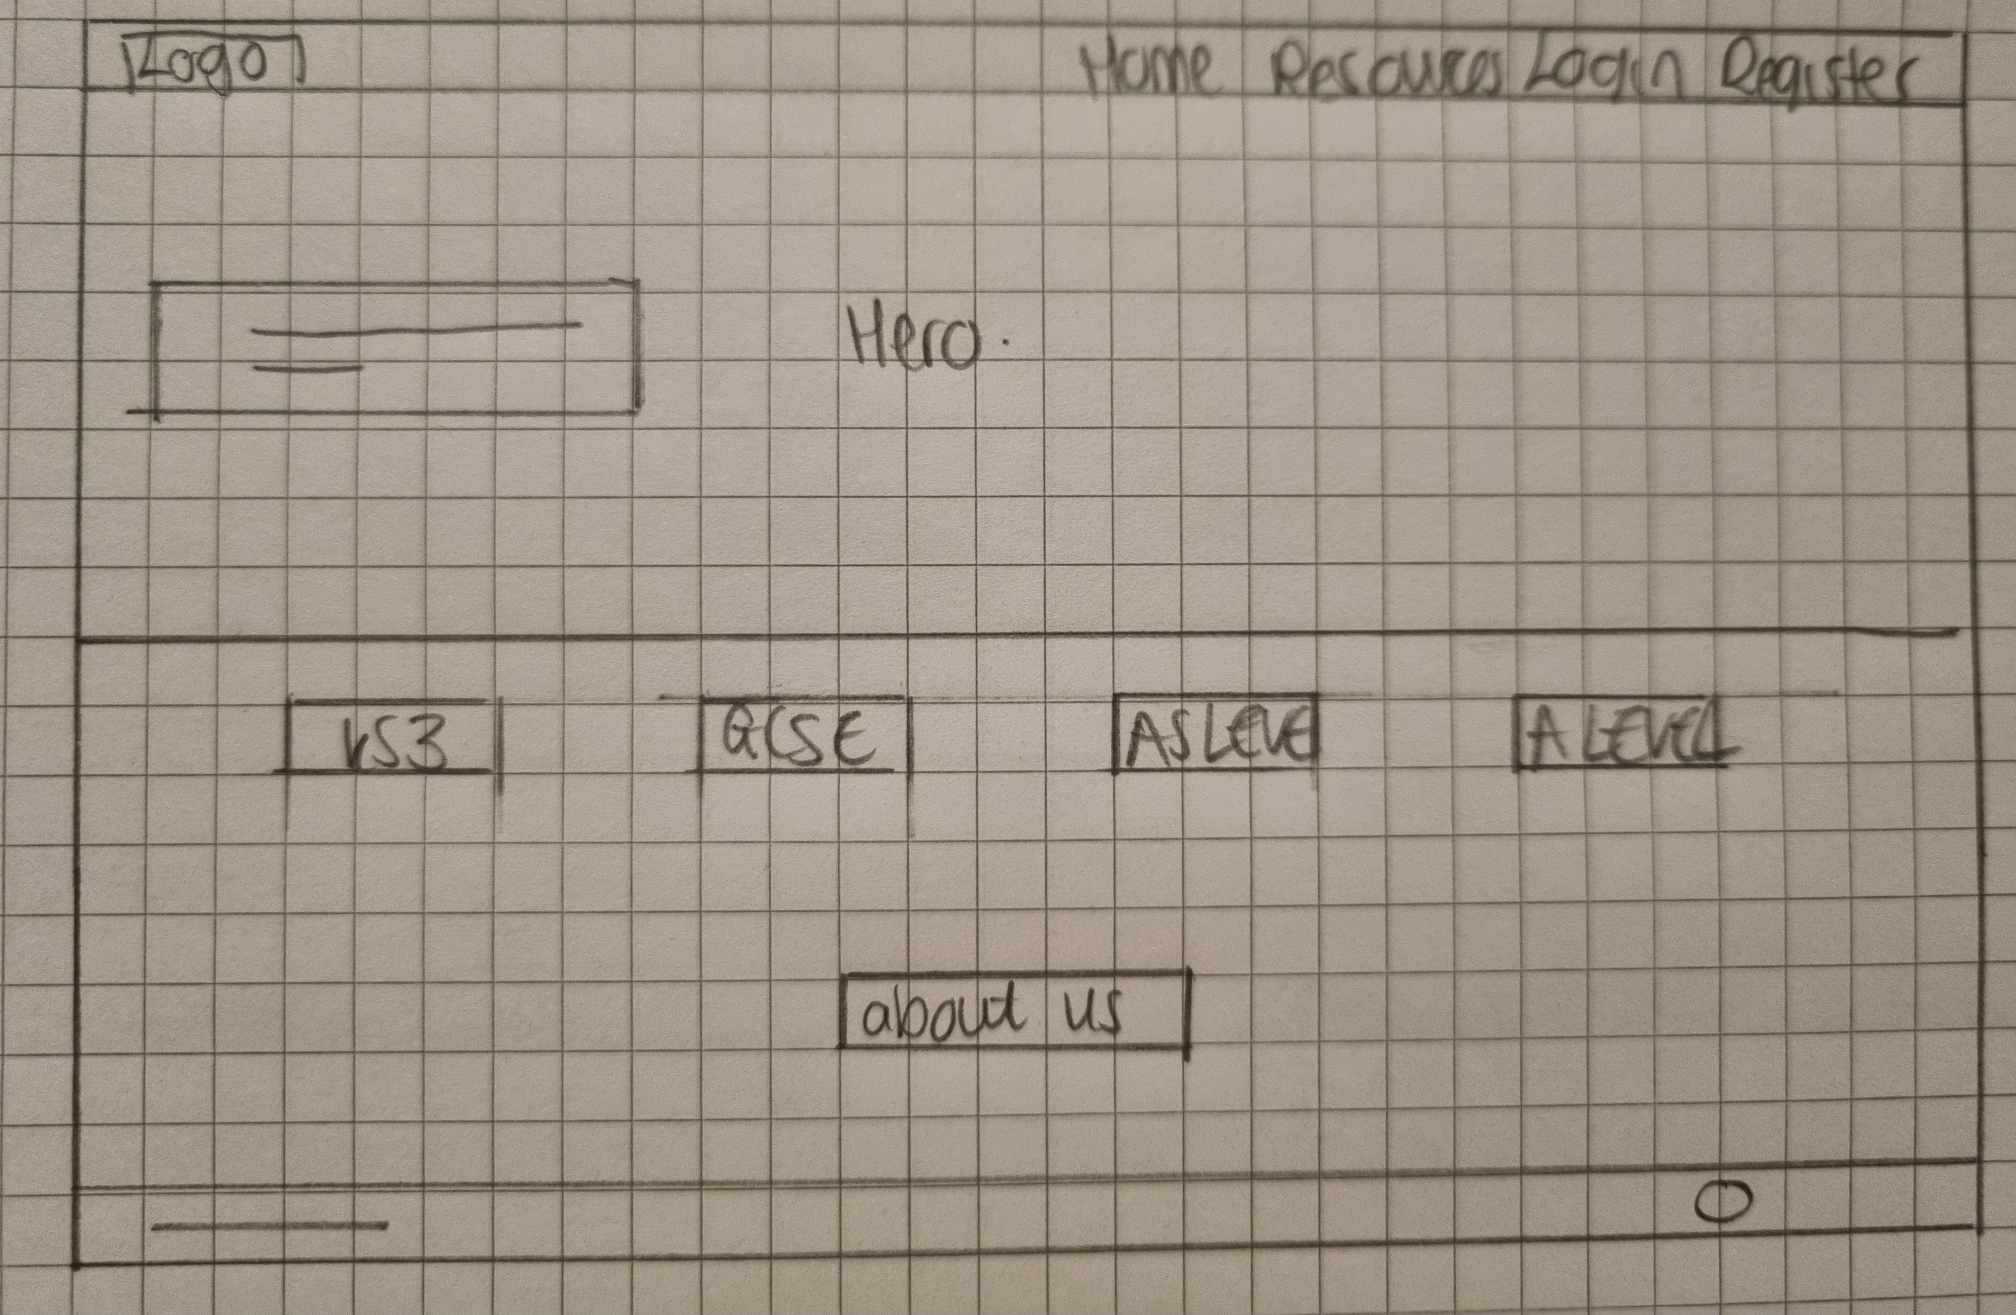 Logo Home Resources Login Register
Hero.
KS3 GCSE AS LEVE A LEVEL
about us